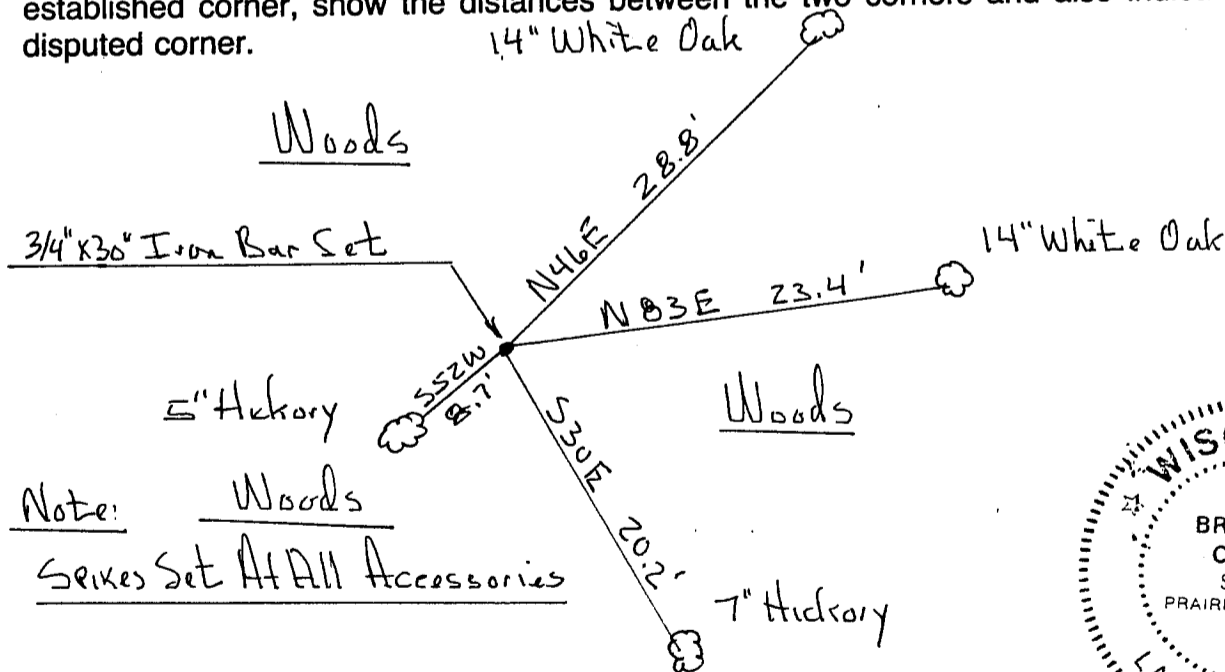 established corner, show the distances between the two corners and also
disputed corner.
14" White Oak
Woods
28.8'
3/4"x30" Iron Bar Set
N46E
14" White Oak
N83E 23.4'
S52W
8.7'
5" Hickory
S30E
Woods
Note:
Woods
20.2'
Spikes Set At All Accessories
7" Hickory
WIS
BR
C
S
PRAIRI